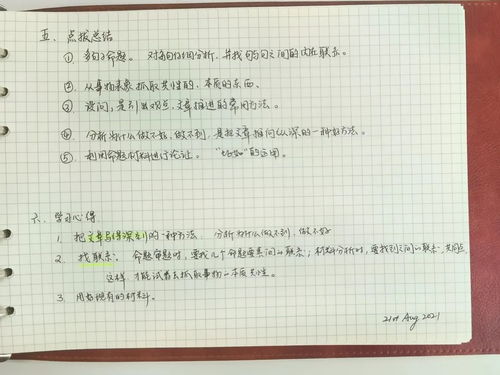 五、点拨总结
① 多句子命题。对每句仔细分析，并找句与句之间的内在联系。
② 从事物表象抓取共性的、本质的东西。
③ 设问，是引出观点，文章推进的常用方法。
④ 分析为什么做不好，做不到，是把文章推向纵深的一种好方法。
⑤ 利用命题材料进行论证。的运用。
六、学习心得
1. 把文章写得深刻的一种方法 分析为什么做不到，做不好
2. 找联系：命题审题时，要找几个命题要素间的联系；材料分析时，要找到之间的联系，共同点
这样才能试着去抓取事物的本质共性。
3. 用好现有的材料。
21st Aug 2021